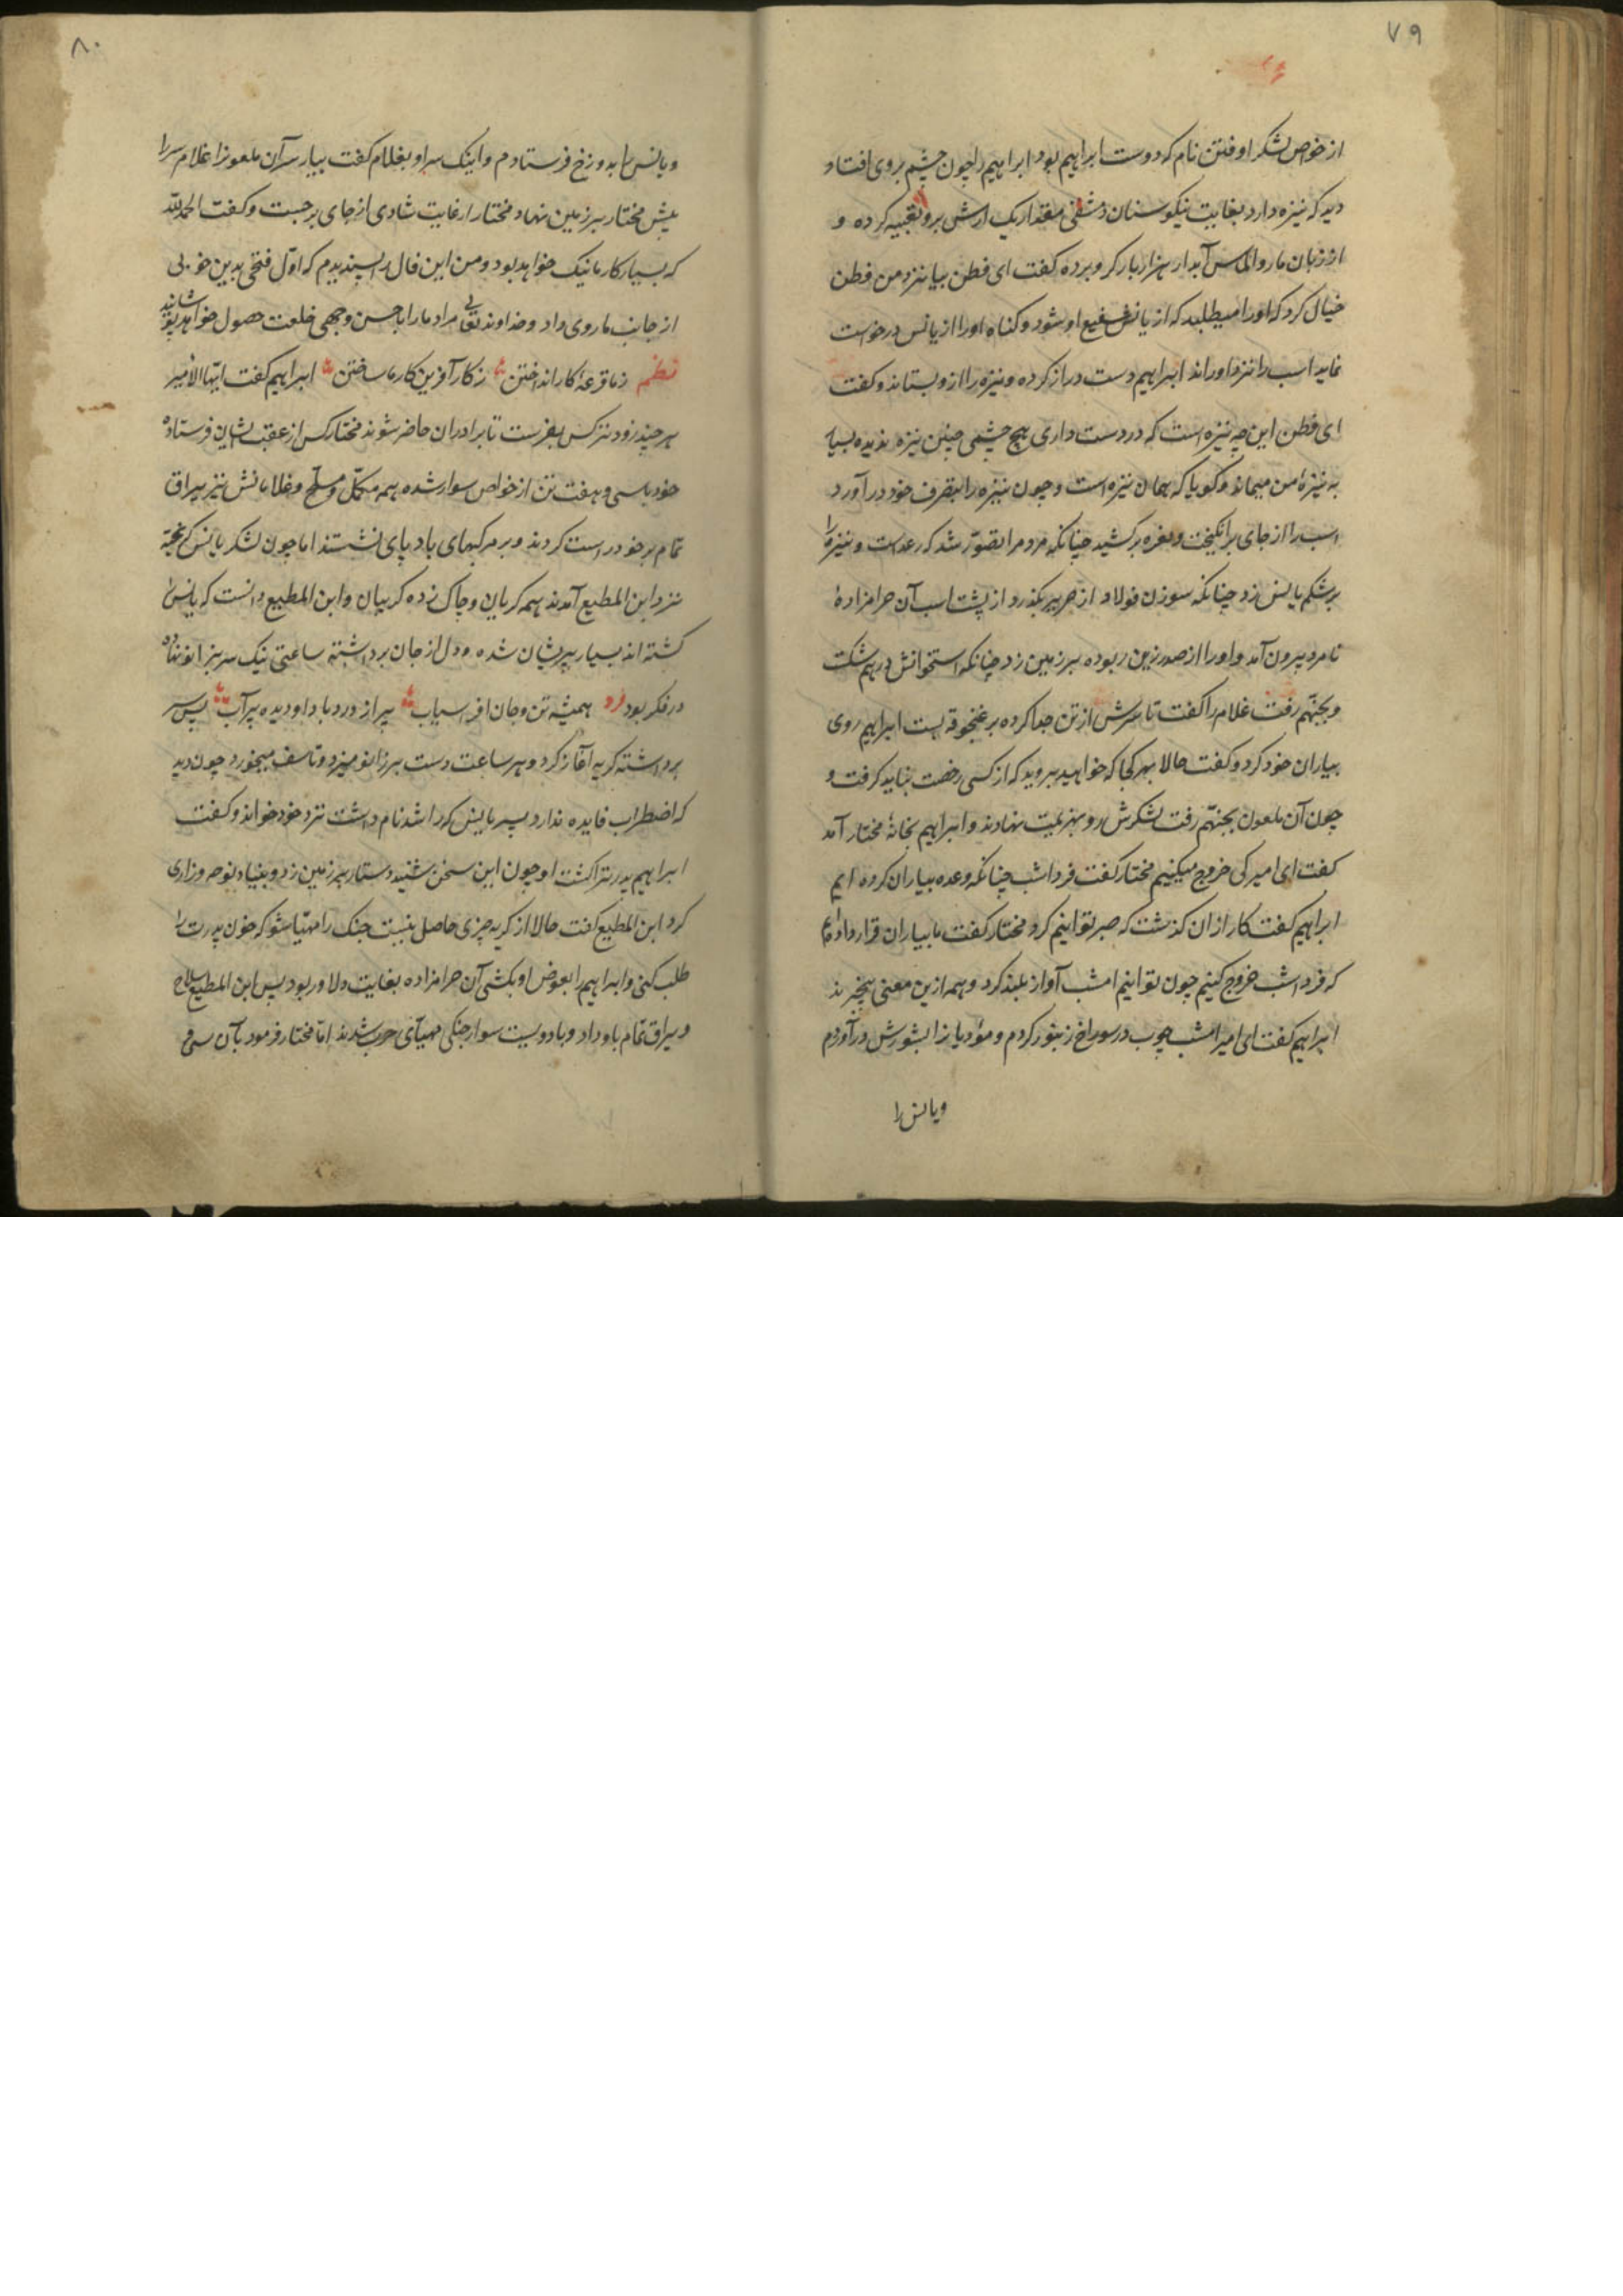 ۷۹
از خواص لشکر او فطن نام که دوست ابراهیم بود ابراهیم را چون چشم بروی افتاد
دید که نیزه دارد بغایت نیکو سنان دمشقی مقدار یک ارش برو تعبیه کرده و
از زبان مار و الماس آبدار هزار بار کرو برده گفت ای فطن بیا نزد من فطن
خیال کرد که اورا میطلبد که از یانس شفیع او شود و کناه اورا از یانس درخواست
نماید اسب را نزد او راند ابراهیم دست دراز کرده و نیزه را ازو بستاند و گفت
ای فطن این چه نیزه است که در دست داری هیچ چشمی چنین نیزه ندیده بسیار
به نیزه من میماند و کویا که همان نیزه است و چون نیزه را بتصرف خود در آورد
اسب را از جای برانکیخت و نعره برکشید چنانکه مردم را تصوّر شد که رعد است و نیزه را
بر شکم یانس زد چنانکه سوزن فولاد از حریر بکذرد از پشت اسب آن حرامزاده
نامرد بیرون آمد و اورا از صدر زین ربوده بر زمین زد چنانکه استخوانش درهم شکست
و بجهنّم رفت غلام را گفت تا سرش از تن جدا کرده بر غنجوقه بست ابراهیم روی
بیاران خود کرد و گفت حالا بهر کجا که خواهید بروید که از کسی رخصت نباید کرفت و
چون آن ملعون بجهنّم رفت لشکرش رو بهزیمت نهادند و ابراهیم بخانهٔ مختار آمد
گفت ای امیر کی خروج میکنیم مختار گفت فردا شب چنانکه وعده بیاران کرده ایم
ابراهیم گفت کار از ان کذشت که صبر توانیم کرد مختار گفت ما بیاران قرار داده‌ایم
که فردا شب خروج کنیم چون توانیم امشب آواز بلند کرد و همه ازین معنی بیخبرند
ابراهیم گفت ای امیر امشب چوب در سوراخ زنبور کردم و موذیانرا بشورش درآوردم
ویانس را
۸۰
ویانس را بدوزخ فرستادم و اینک سر او بغلام گفت بیار سر آن ملعونرا غلام سر را
پیش مختار بر زمین نهاد مختار از غایت شادی از جای برجست و گفت الحمدلله
که بسیار کار ما نیک خواهد بود و من این فال را پسندیدم که اوّل فتحی بدین خوبی
از جانب ما روی داد و خداوند تعالی مراد ما را باحسن وجهی خلعت حصول خواهد پوشانید
نظم ز ما قرعهٔ کار انداختن ز کار آفرین کارها ساختن ابراهیم گفت ایّها الأمیر
هر چند زودتر کس بفرست تا برادران حاضر شوند مختار کس از عقب ایشان فرستاده
خود باسی و هفت تن از خواص سوار شده همه مکمّل و مسلّح و غلامانش نیز یراق
تمام بر خود راست کردند و بر مرکبهای بادپای نشستند اما چون لشکر یانس کریخته
نزد ابن المطیع آمدند همه کریان و چاک زده کریبان و ابن المطیع دانست که یانس را
کشته اند بسیار پریشان شده و دل از جان برداشته ساعتی نیک سر بزانو نهاده
در فکر بود فرد همیشه تن و جان افراسیاب پر از درد باد او دیده پر آب پس سر
برداشته کریه آغاز کرد و هر ساعت دست بر زانو میزد و تاسف میخورد چون دید
که اضطراب فایده ندارد پسر یانس که راشد نام داشت نزد خود خواند و گفت
ابراهیم پدرترا کشت او چون این سخن شنید دستار بر زمین زد و بنیاد نوحه و زاری
کرد ابن المطیع گفت حالا از کریه چیزی حاصل نیست جنک را مهیّا شو که خون پدرت را
طلب کنی و ابراهیم را بعوض او بکشی آن حرامزاده بغایت دلاور بود پس ابن المطیع سلاح
و یراق تمام باو داد و با دویست سوار جنکی مهیّای حرب شدند امّا مختار فرمود بآن سی و